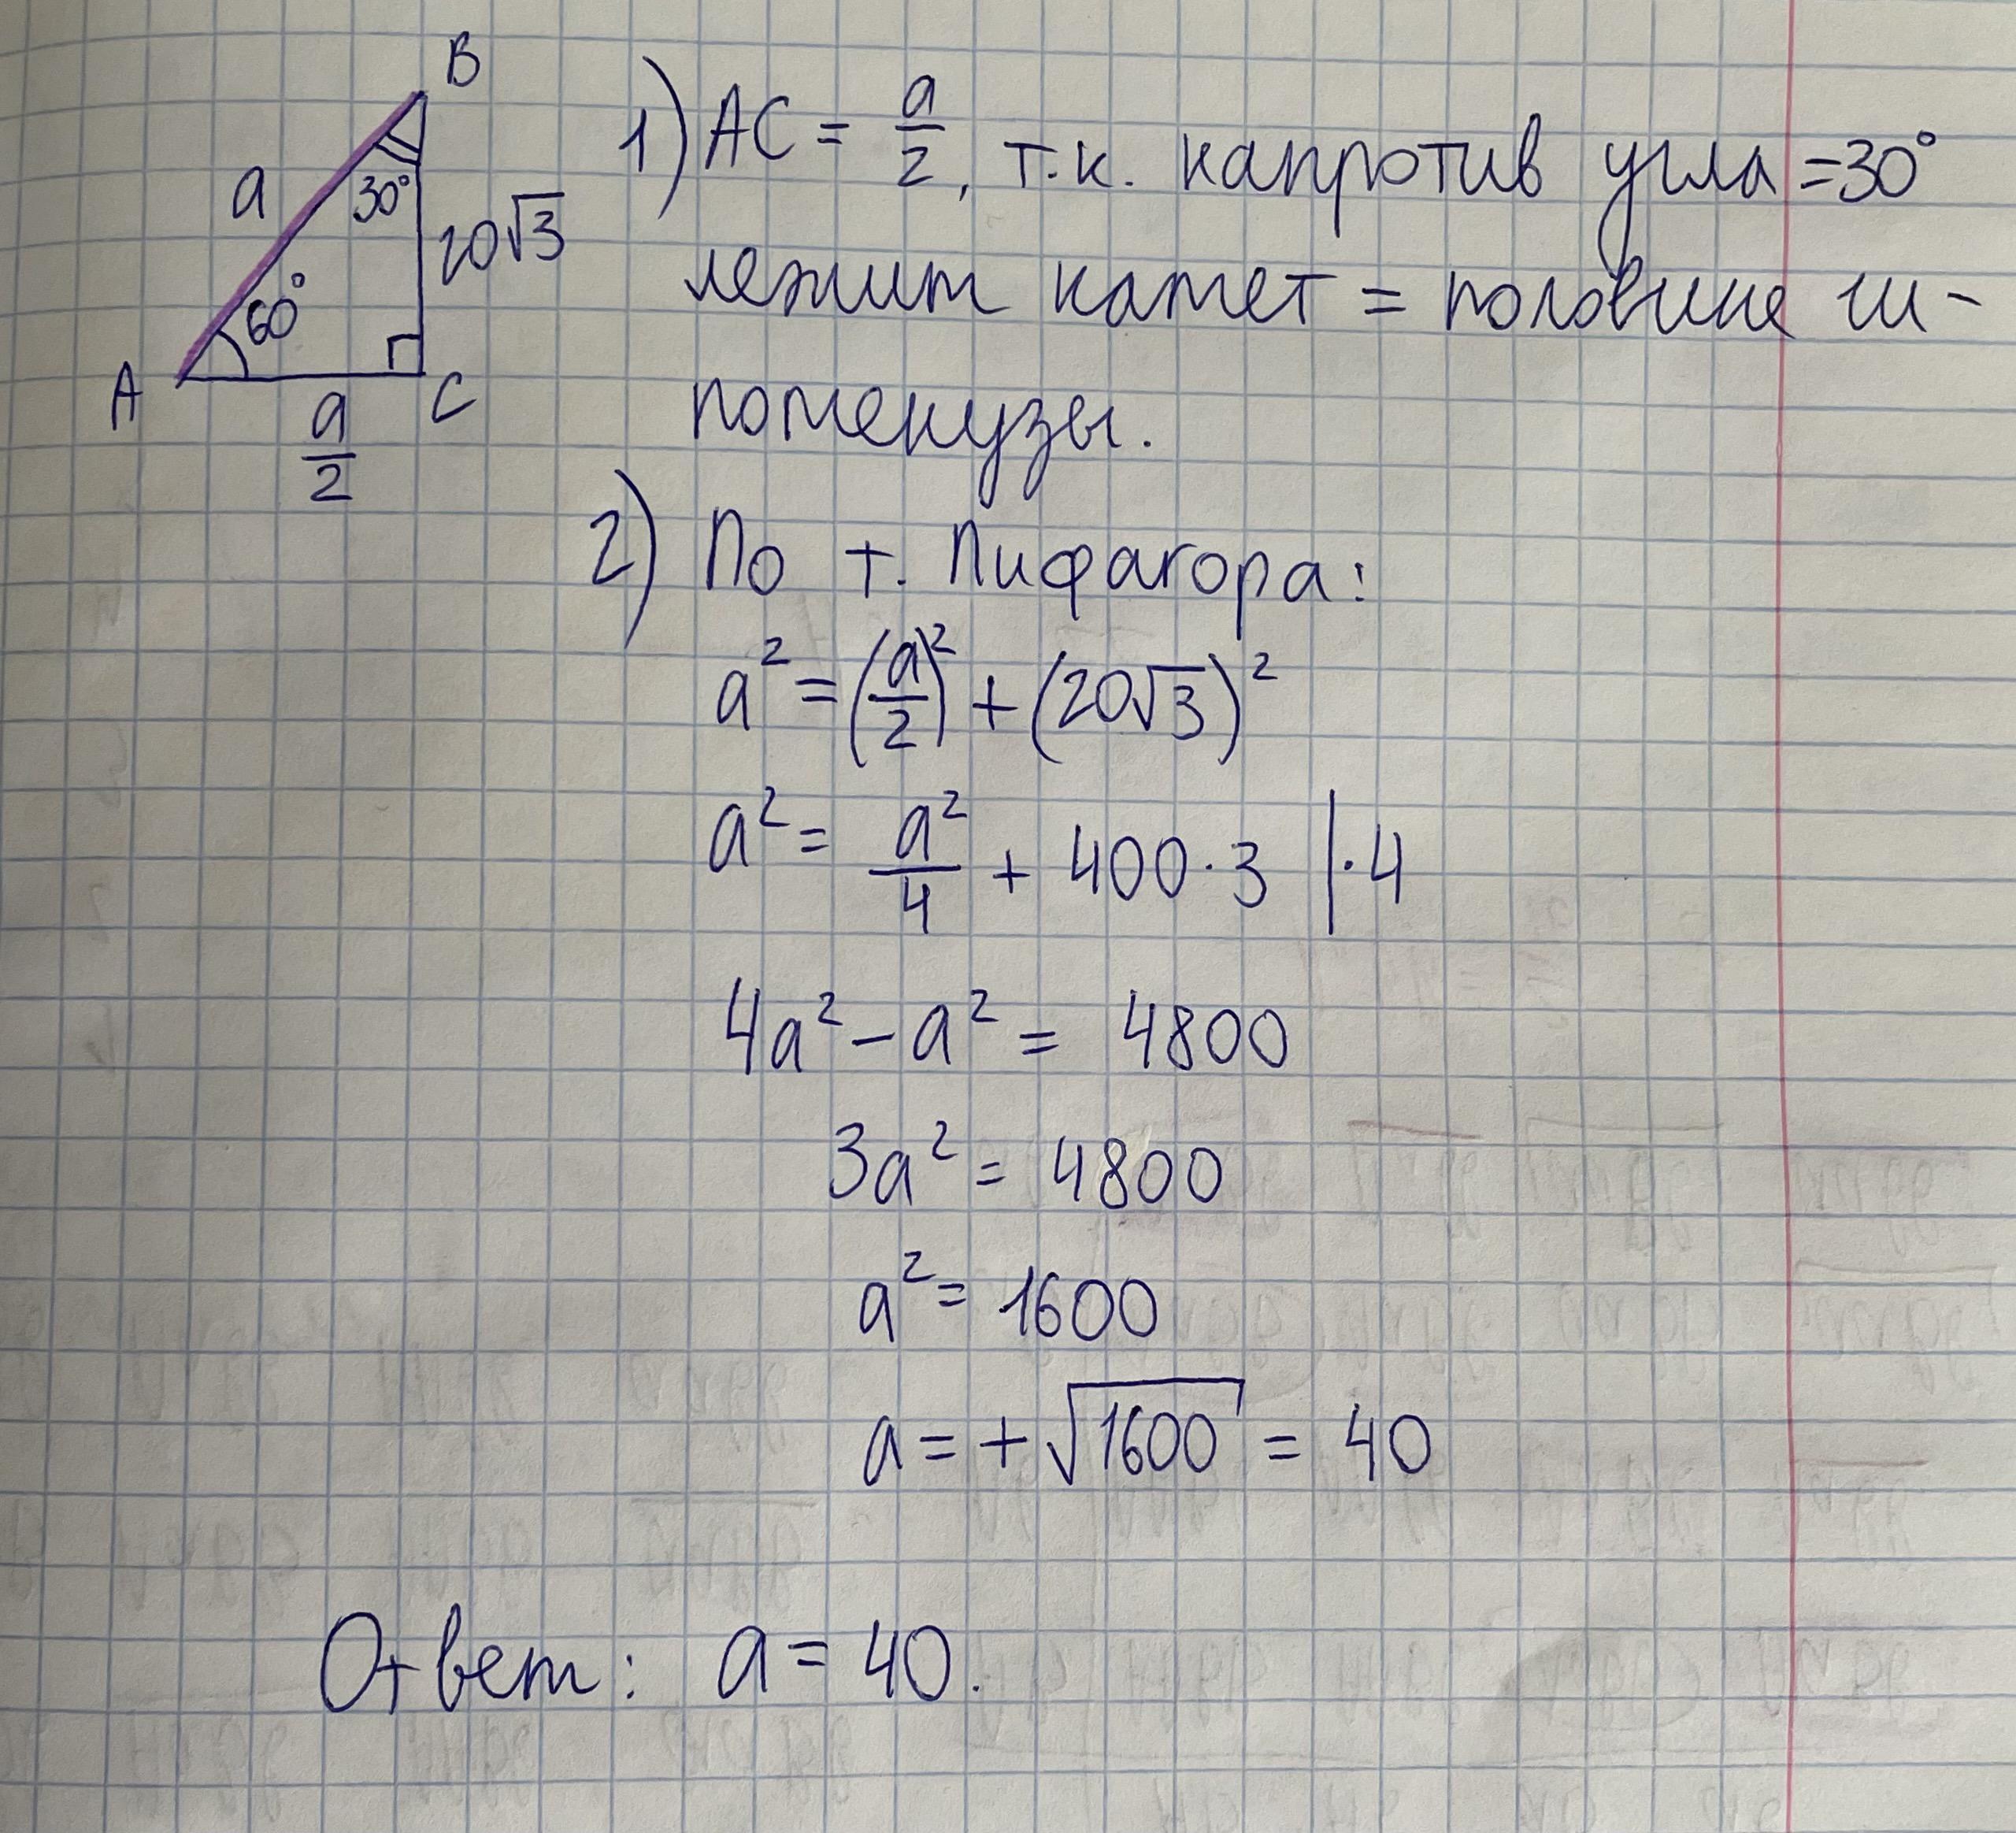 B
a
30°
20√3
60°
A
C
a/2
1) AC = a/2, т.к. напротив угла =30°
лежит катет = половине ги-
потенузы.
2) По т. Пифагора:
a² = (a/2)² + (20√3)²
a² = a²/4 + 400·3 |·4
4a² - a² = 4800
3a² = 4800
a² = 1600
a = +√1600 = 40
Ответ: a = 40.